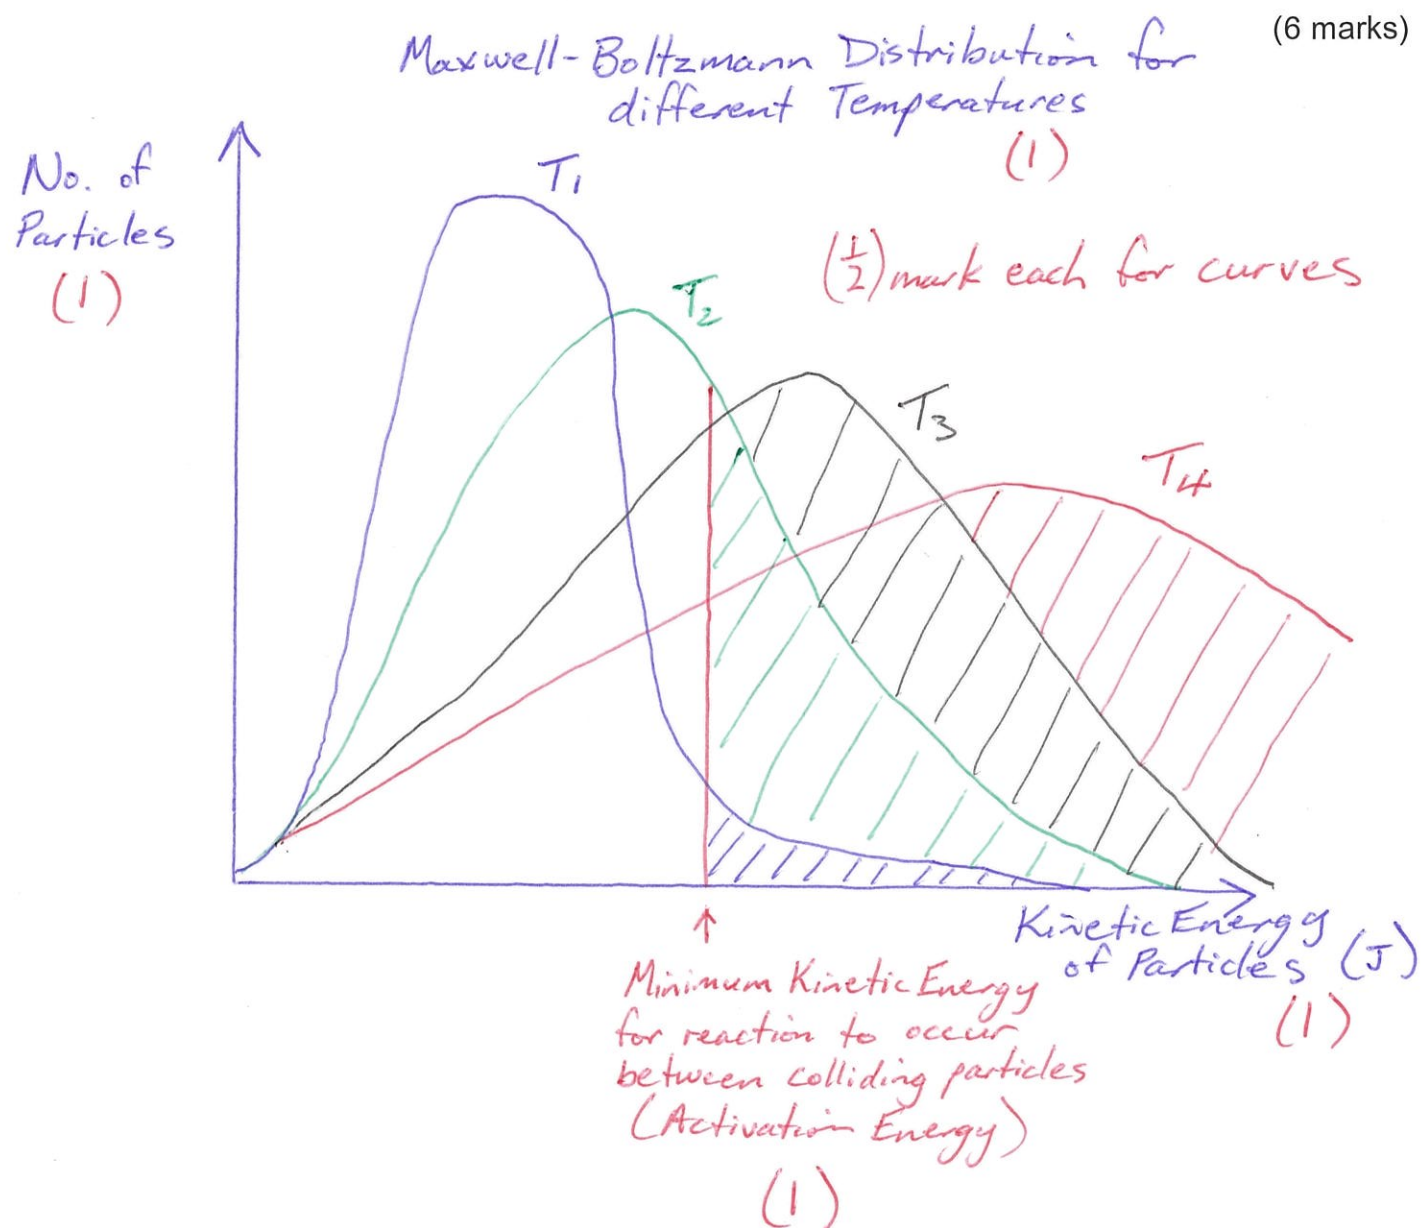 (6 marks)
Maxwell-Boltzmann Distribution for
different Temperatures
(1)
No. of
Particles
(1)
T1
(1/2) mark each for curves
T2
T3
T4
Kinetic Energy
of Particles (J)
(1)
↑
Minimum Kinetic Energy
for reaction to occur
between colliding particles
(Activation Energy)
(1)